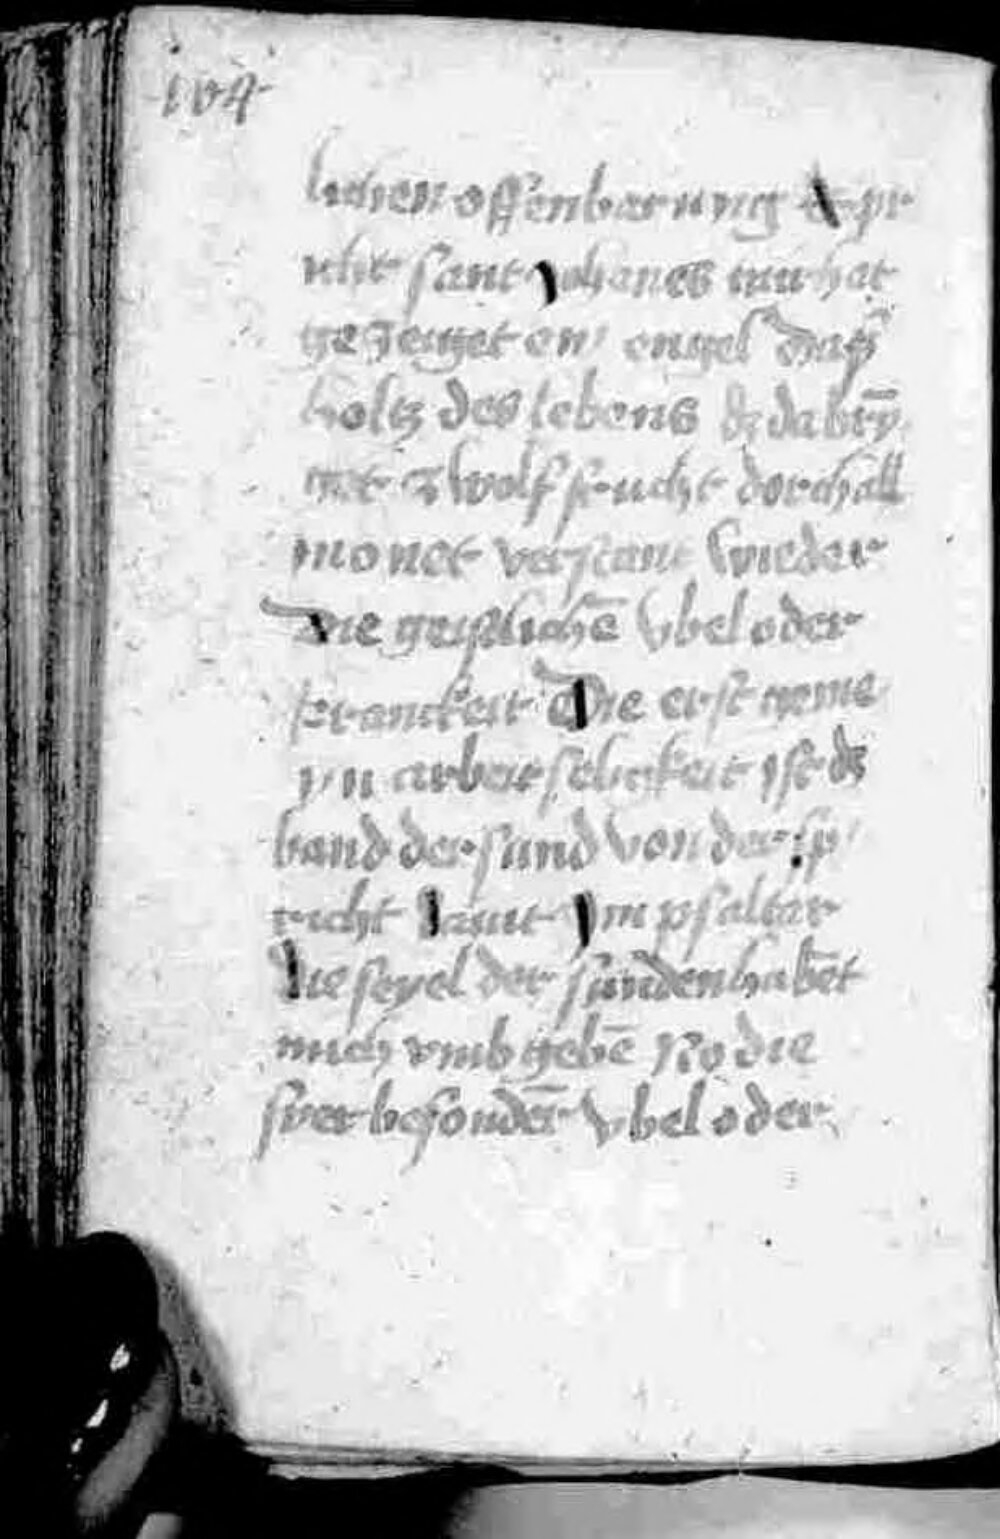 104
lichen offenbarung Spr
icht sant Johanes mir hat
gezeyget ein engel das
holtz des lebens dz da brin
get zwolf frucht dorch all
monet verstant wieder
Die geistlichē vbel oder
kranckeit Die erst geme
yn arbeitselickeit ist dz
band der sund von der sp
richt Dauit Im psaltar
Die seyel der sunden habēt
mich vmb gebē No die
sver besondēr vbel oder